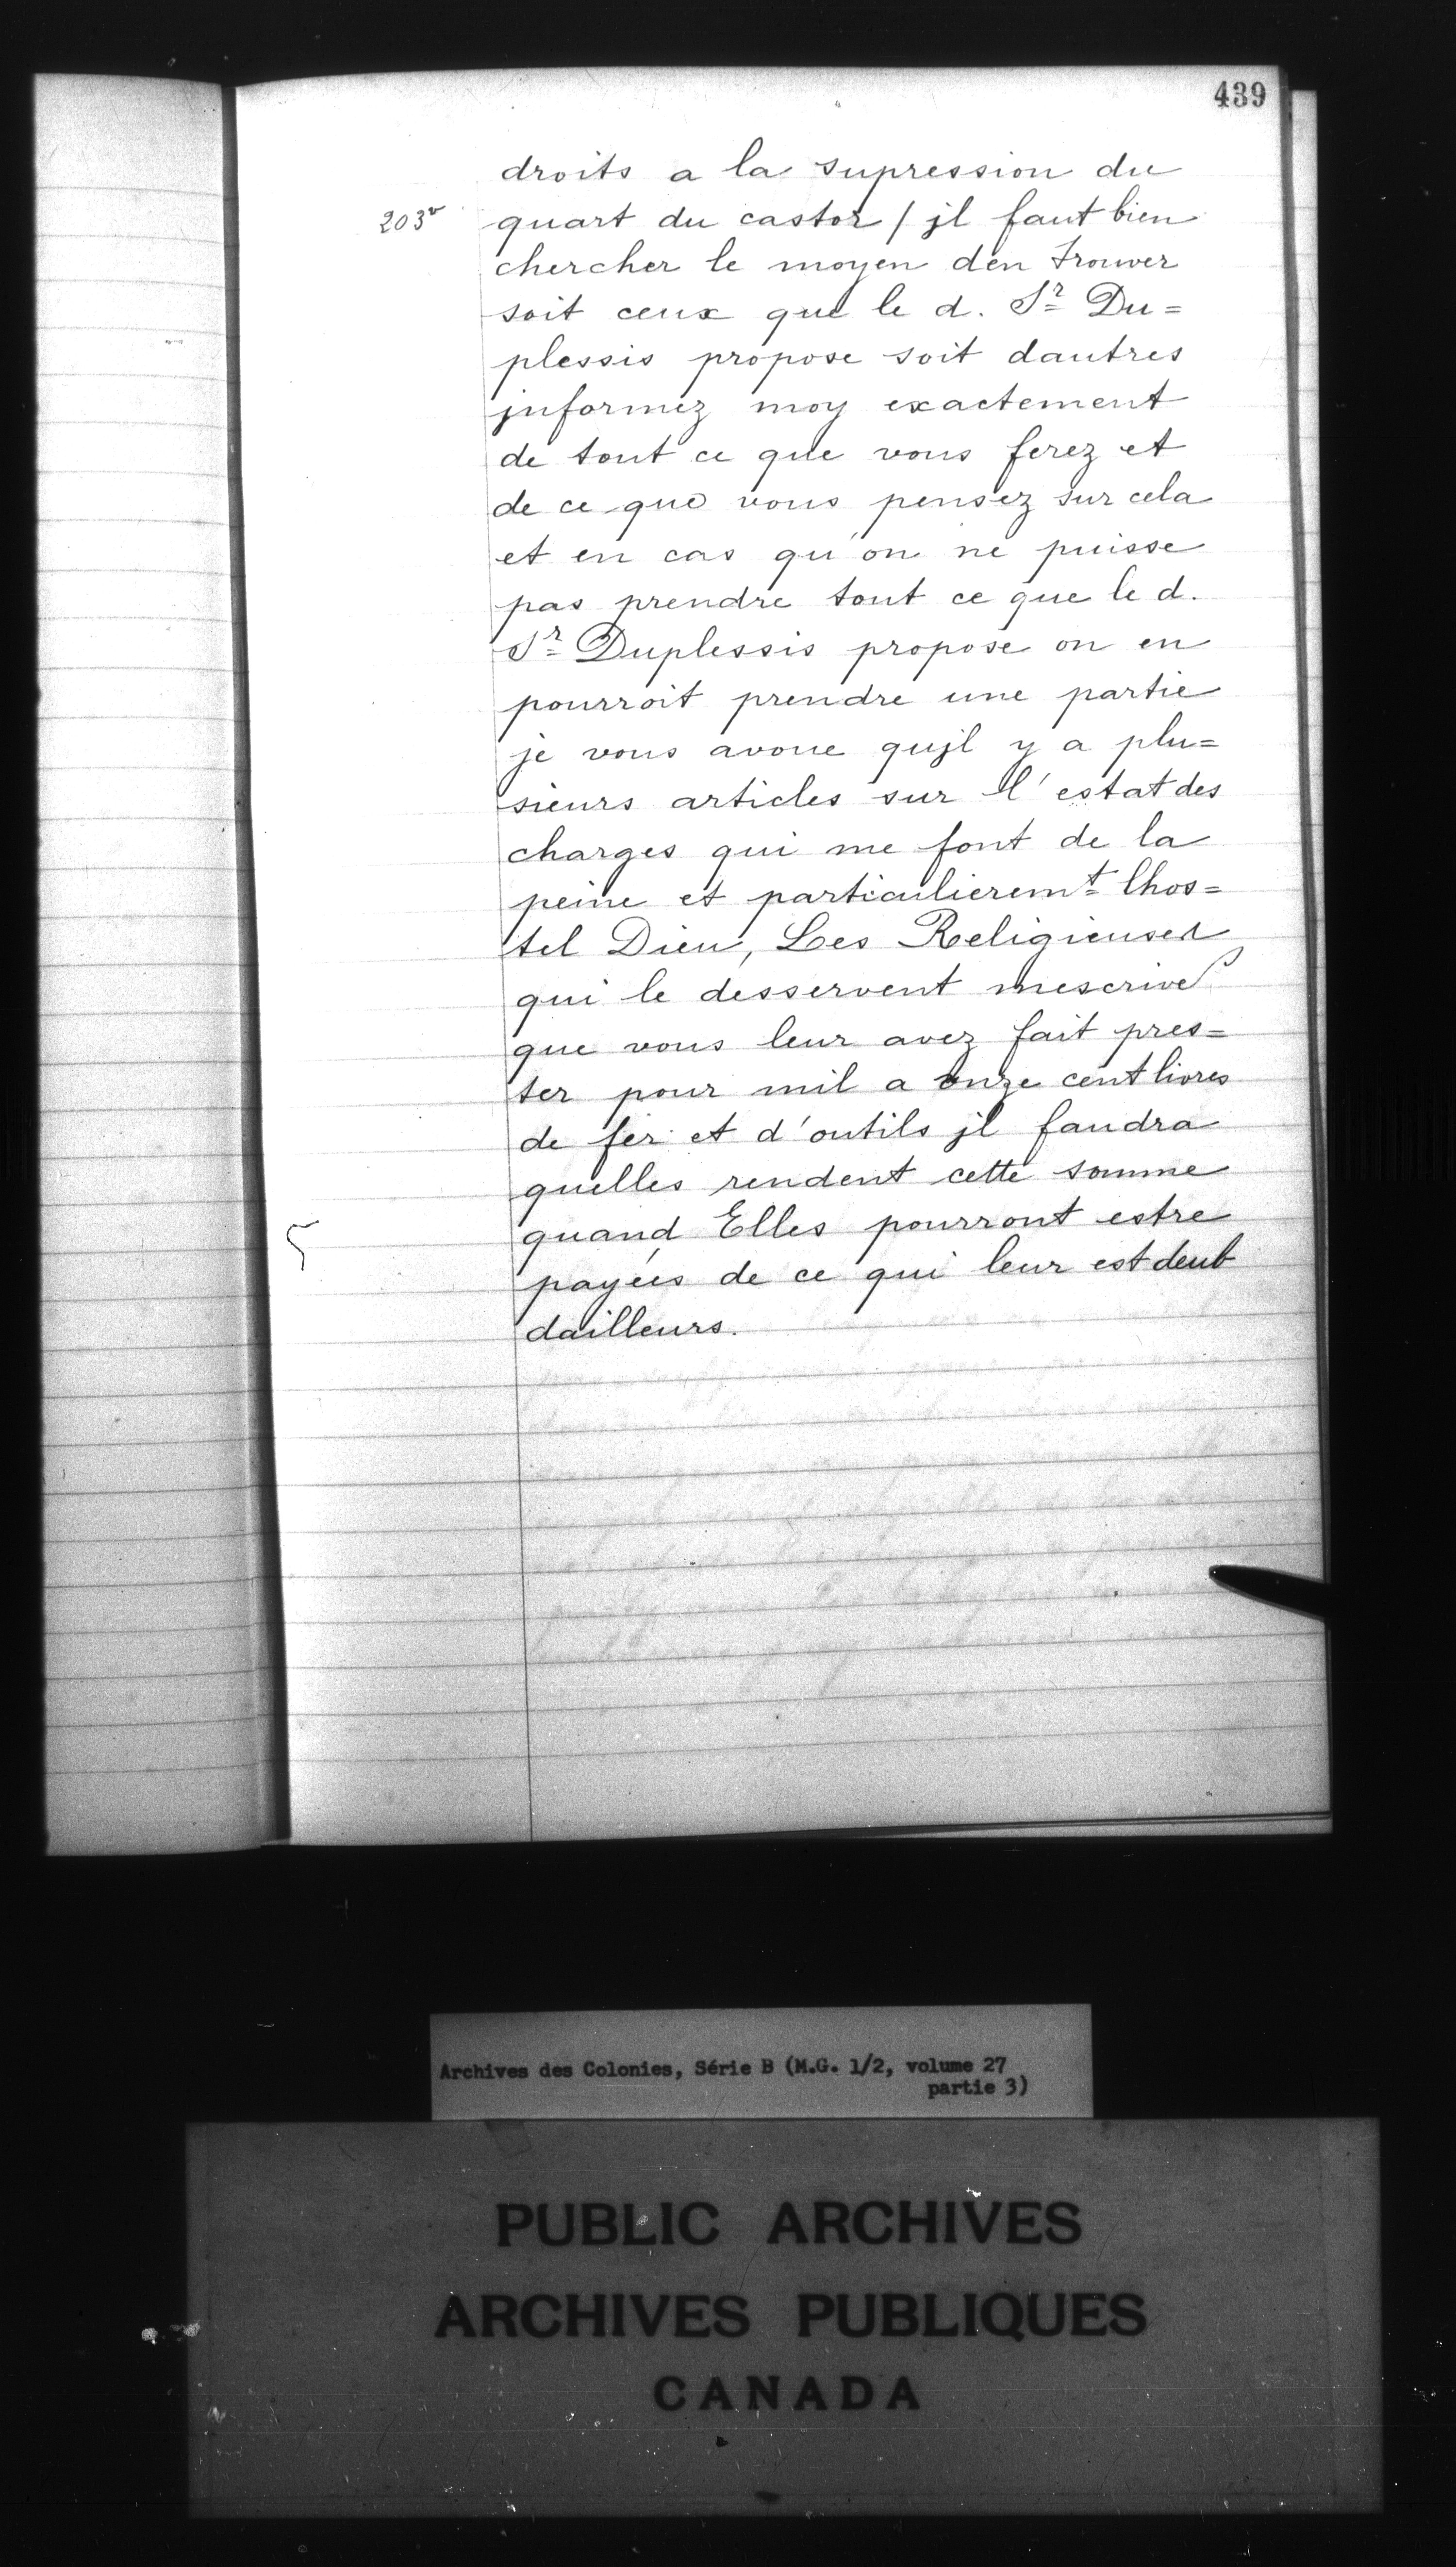 439
droits a la supression du
203v quart du castor / jl faut bien
chercher le moyen den trouver
soit ceux que le d. Sr Du=
plessis propose soit dautres
jnformez moy exactement
de tout ce que vous ferez et
de ce que vous pensez sur cela
et en cas qu'on ne puisse
pas prendre tout ce que le d.
Sr Duplessis propose on en
pourroit prendre une partie
je vous avoue qujl y a plu=
sieurs articles sur l'estat des
charges qui me font de la
peine et particulieremt lhos=
tel Dieu, Les Religieuses
qui le desservent mescrive
que vous leur avez fait pres=
ter pour mil a onze cent livres
de fer et d'outils jl faudra
quelles rendent cette somme
quand Elles pourront estre
payées de ce qui leur est deub
dailleurs.
Archives des Colonies, Série B (M.G. 1/2, volume 27
partie 3)
PUBLIC ARCHIVES
ARCHIVES PUBLIQUES
CANADA